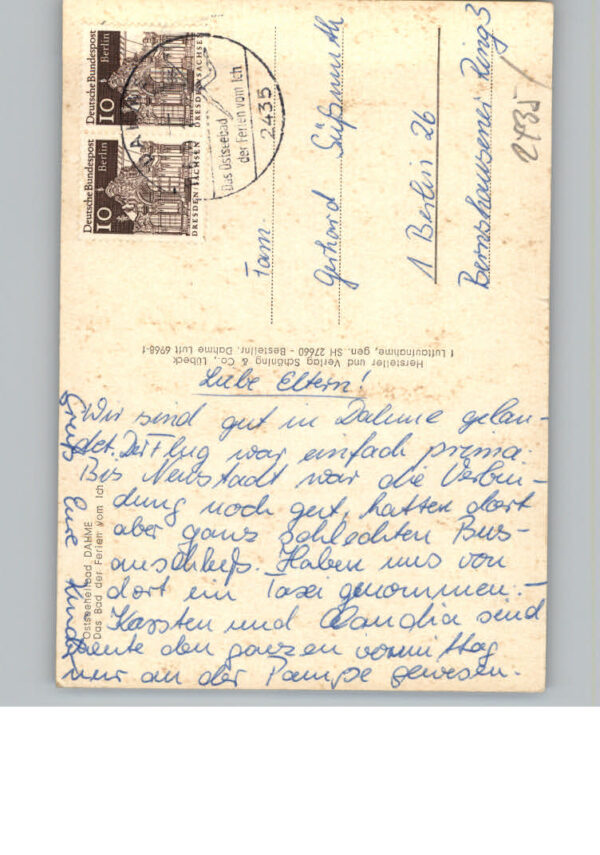 Deutsche Bundespost
Berlin
10
DRESDEN/SACHSEN
Deutsche Bundespost
Berlin
10
DRESDEN/SACHSEN
DAHME
Das Ostseebad
der Ferien vom Ich
2435
Fam.
Gerhard Süßmuth
1 Berlin 26
Bernshausener Ring 3
2435
Hersteller und Verlag Schöning & Co., Lübeck
† Luftaufnahme, gen. SH 27660 - Bestellnr. Dahme Luft 6968-1
Ostseeheilbad DAHME
Das Bad der Ferien vom Ich
Liebe Eltern!
Wir sind gut in Dahme gelan-
det. Der Flug war einfach prima.
Bis Neustadt war die Verbin-
dung noch gut, hatten dort
aber ganz schlechten Bus-
anschluß. Haben uns von
dort ein Taxi genommen. -
Karsten und Claudia sind
heute den ganzen vormittag
nur an der Pampe gewesen.
Gruß Eure Kinder